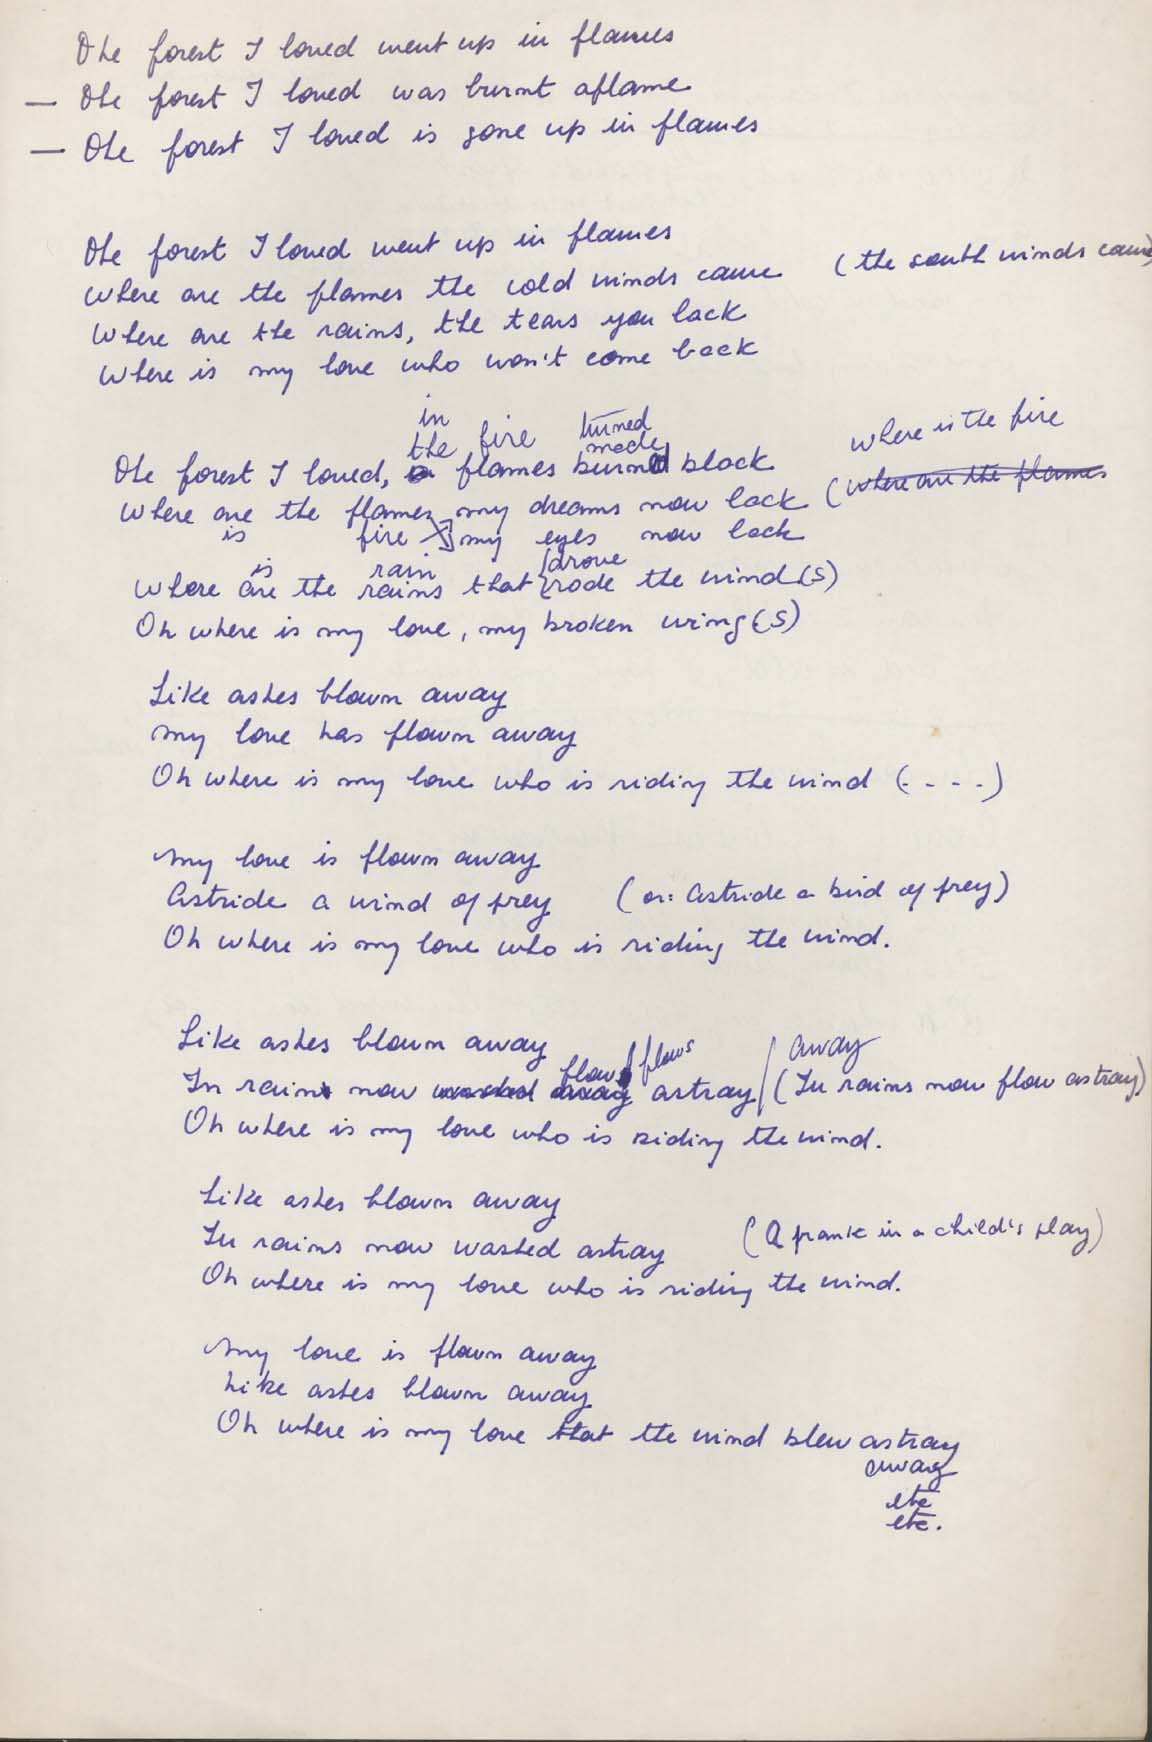 The forest I loved went up in flames
— The forest I loved was burnt aflame
— The forest I loved is gone up in flames
The forest I loved went up in flames
Where are the flames the cold winds came (the south winds came)
Where are the rains, the tears you lack
Where is my love who won't come back
in
the fire turned
made where is the fire
The forest I loved, flames burned black
Where are the flames my dreams now lack (where are the flames
is fire my eyes now lack
is rain drove
Where are the rains that rode the wind(s)
Oh where is my love, my broken wing(s)
Like ashes blown away
My love has flown away
Oh where is my love who is riding the wind (- - - -)
My love is flown away
Astride a wind of prey (or: Astride a bird of prey)
Oh where is my love who is riding the wind.
Like ashes blown away
flows flows away
In rains now washed away astray / (In rains now flow astray)
Oh where is my love who is riding the wind.
Like ashes blown away
In rains now washed astray (A prank in a child's play)
Oh where is my love who is riding the wind.
My love is flown away
Like ashes blown away
Oh where is my love that the wind blew astray
away
etc
etc.